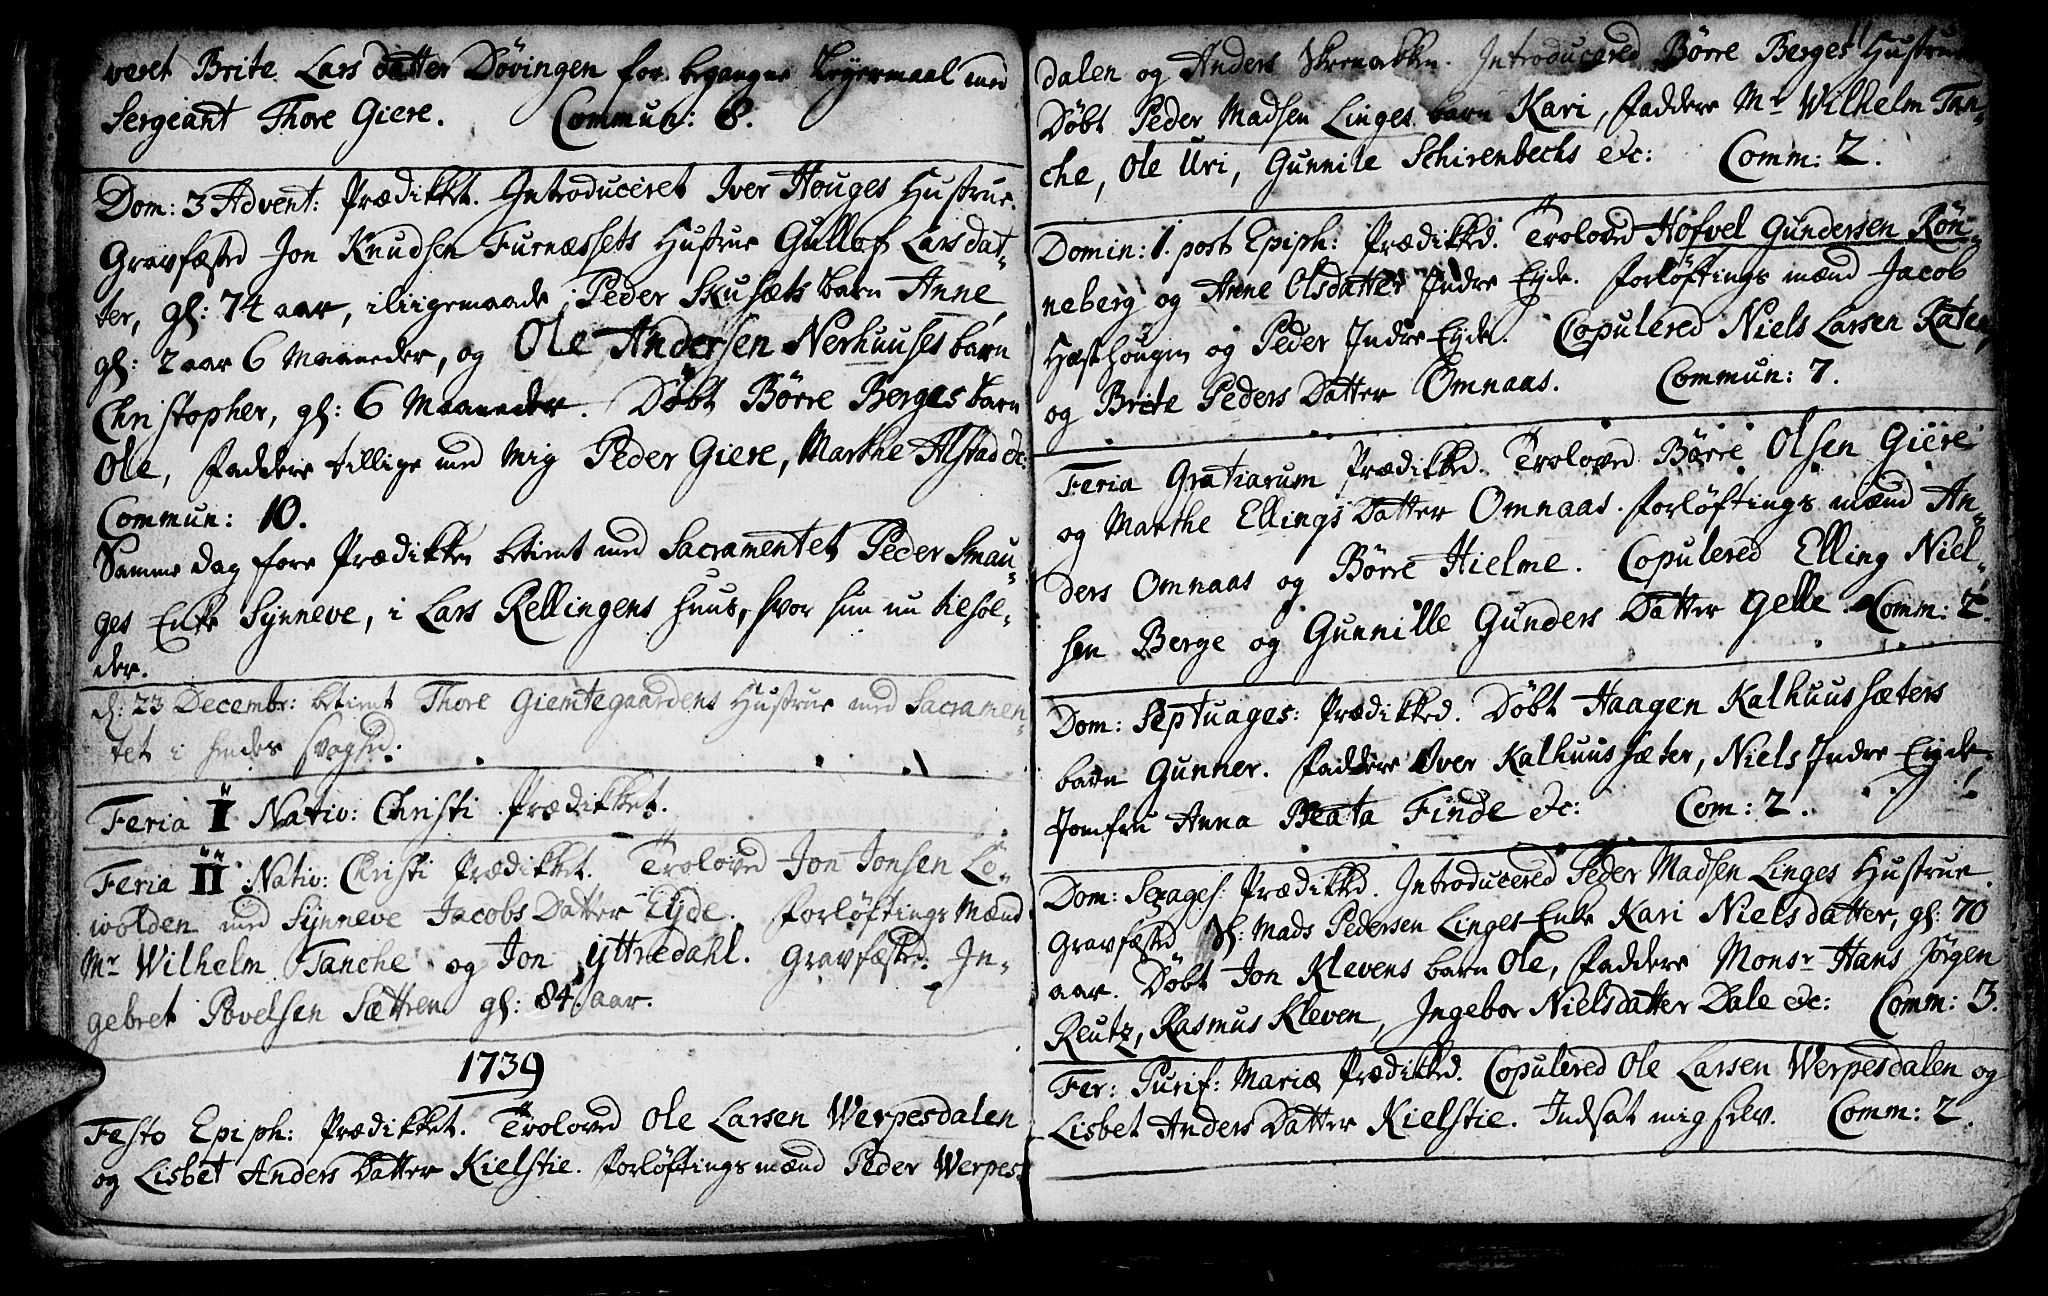 veret Brite Lars datter Dövingen for begangne Leyermaal med
Sergeant Thore Giere. Commun: 8.
Dom: 3 Advent: Prædikket. Introduceret Iver Houges Hustrue.
Gravfæsted Jon Knudsen Furnæssets Hustrue Gulløf Larsdat-
ter, gl: 74 aar, iliigemaade Peder Skusæts barn Anne
gl: 2 aar 6 Maaneder, og Ole Andersen Nerhuuses barn
Christopher, gl: 6 Maaneder. Döbt Börre Berges barn
Ole, Faddere tillige med mig Peder Giere, Marthe Alstad etc:
Commun: 10.
Samme dag fore Prædikken betient med Sacramentet Peder Smau-
ges Enke Synneve, i Lars Rellingens Huus, hvor hun nu tilhol-
der.
d: 23 Decembr: betient Thore Giemtegaardens Hustrue med Sacramen-
tet i hendes svaghed.
Feria I Nativ: Christi Prædikket.
Feria II Nativ: Christi Prædikket. Troloved Jon Jonsen Lö-
wolden med Synneve Jacobs Datter Eyde. Forlöftings Mænd
Mr Wilhelm Tanche og Jon Yttredahl. Gravfæsted In-
gebret Povelsen Sættren gl: 84 aar.
1739
Festo Epiph: Prædikket. Troloved Ole Larsen Werpesdalen
og Lisbet Anders Datter Kielstie. Forlöftings mænd Peder Werpes-
dalen og Anders Skrenakken. Introducered Börre Berges Hustrue
Döbt Peder Madsen Linges barn Kari, Faddere Mr Wilhelm Tan-
che, Ole Uri, Gunnile Schirenbechs etc: Comm: 2.
Domin: 1. post Epiph: Prædikked. Troloved Hofvel Gundersen Rön-
neberg og Anne Olsdatter Indre Eyde. Forlöftings mænd Jacob
Hæsthougen og Peder Indre Eyde. Copulered Niels Larsen Raten,
og Brite Peders Datter Omnaas. Commun: 7.
Feria Gratiarum Prædikked. Troloved Börre Olsen Giere
og Marthe Ellings Datter Omnaas. Forlöftings mænd An-
ders Omnaas og Börre Hielme. Copulered Elling Niel-
sen Berge og Gunnille Gunders Datter Gelle. Comm: 2.
Dom: Septuages: Prædikked. Döbt Haagen Kalhuussæters
barn Gunner. Faddere Iver Kalhuussæter, Niels Indre Eyde
Jomfru Anna Beata Finde etc: Com: 2.
Dom: Sexages: Prædikked. Introducered Peder Madsen Linges Hustrue.
Gravfæsted Sl: Mads Pedersen Linges Enke Kari Nielsdatter, gl: 70
aar. Döbt Jon Klevens barn Ole, Faddere Monsr Hans Jörgen
Reutz, Rasmus Kleven, Ingebor Nielsdatter Dale etc: Comm: 3.
Fer: Purif: Mariæ Prædikked. Copulered Ole Larsen Werpesdalen og
Lisbet Anders Datter Kielstie. Indsat mig selv. Comm: 2.